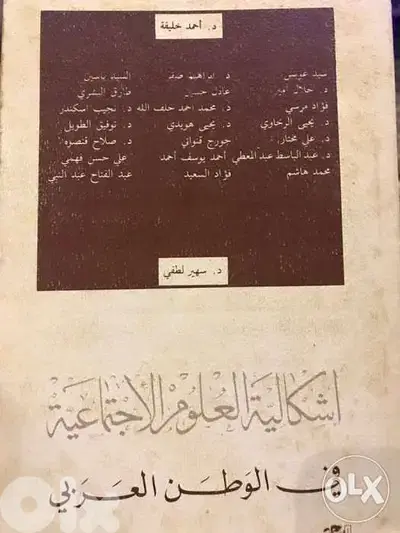 د. أحمد خليفة
سيد عويس د. ابراهيم صقر السيد ياسين
د. جلال أمين عادل حسين طارق البشري
فؤاد مرسي د. محمد احمد خلف الله د. نجيب اسكندر
د. يحيى الرخاوي د. يحيى هويدي د. توفيق الطويل
د. علي مختار جورج قنواتي د. صلاح قنصوه
د. عبد الباسط عبد المعطي أحمد يوسف أحمد علي حسن فهمي
محمد هاشم فؤاد السعيد عبد الفتاح عبد النبي
د. سهير لطفي
إشكالية العلوم الاجتماعية
في الوطن العربي
OLX
OLX